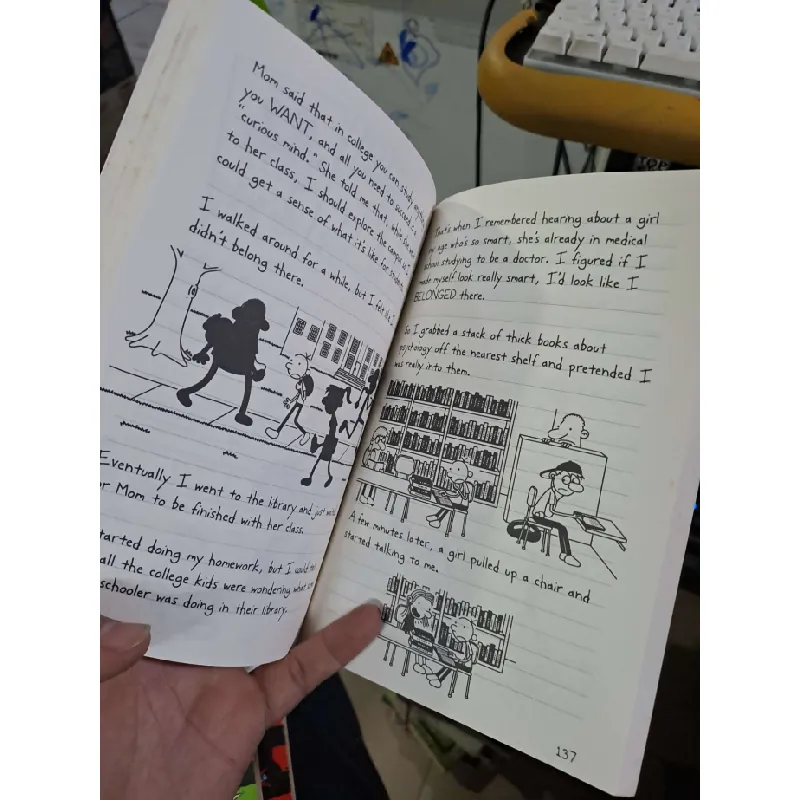 Mom said that in college you can study
you WANT, and all you need to succeed is
"curious mind." She told me that while
to her class, I should explore the campus so I
could get a sense of what it's like for
I walked around for a while, but I felt like
didn't belong there.
Eventually I went to the library and just
Mom to be finished with her class.
started doing my homework, but I could
all the college kids were wondering what
schooler was doing in their library.
That's when I remembered hearing about a girl
my age who's so smart, she's already in medical
school studying to be a doctor. I figured if I
made myself look really smart, I'd look like I
BELONGED there.
So I grabbed a stack of thick books about
psychology off the nearest shelf and pretended I
was really into them.
A few minutes later, a girl pulled up a chair and
started talking to me.
137